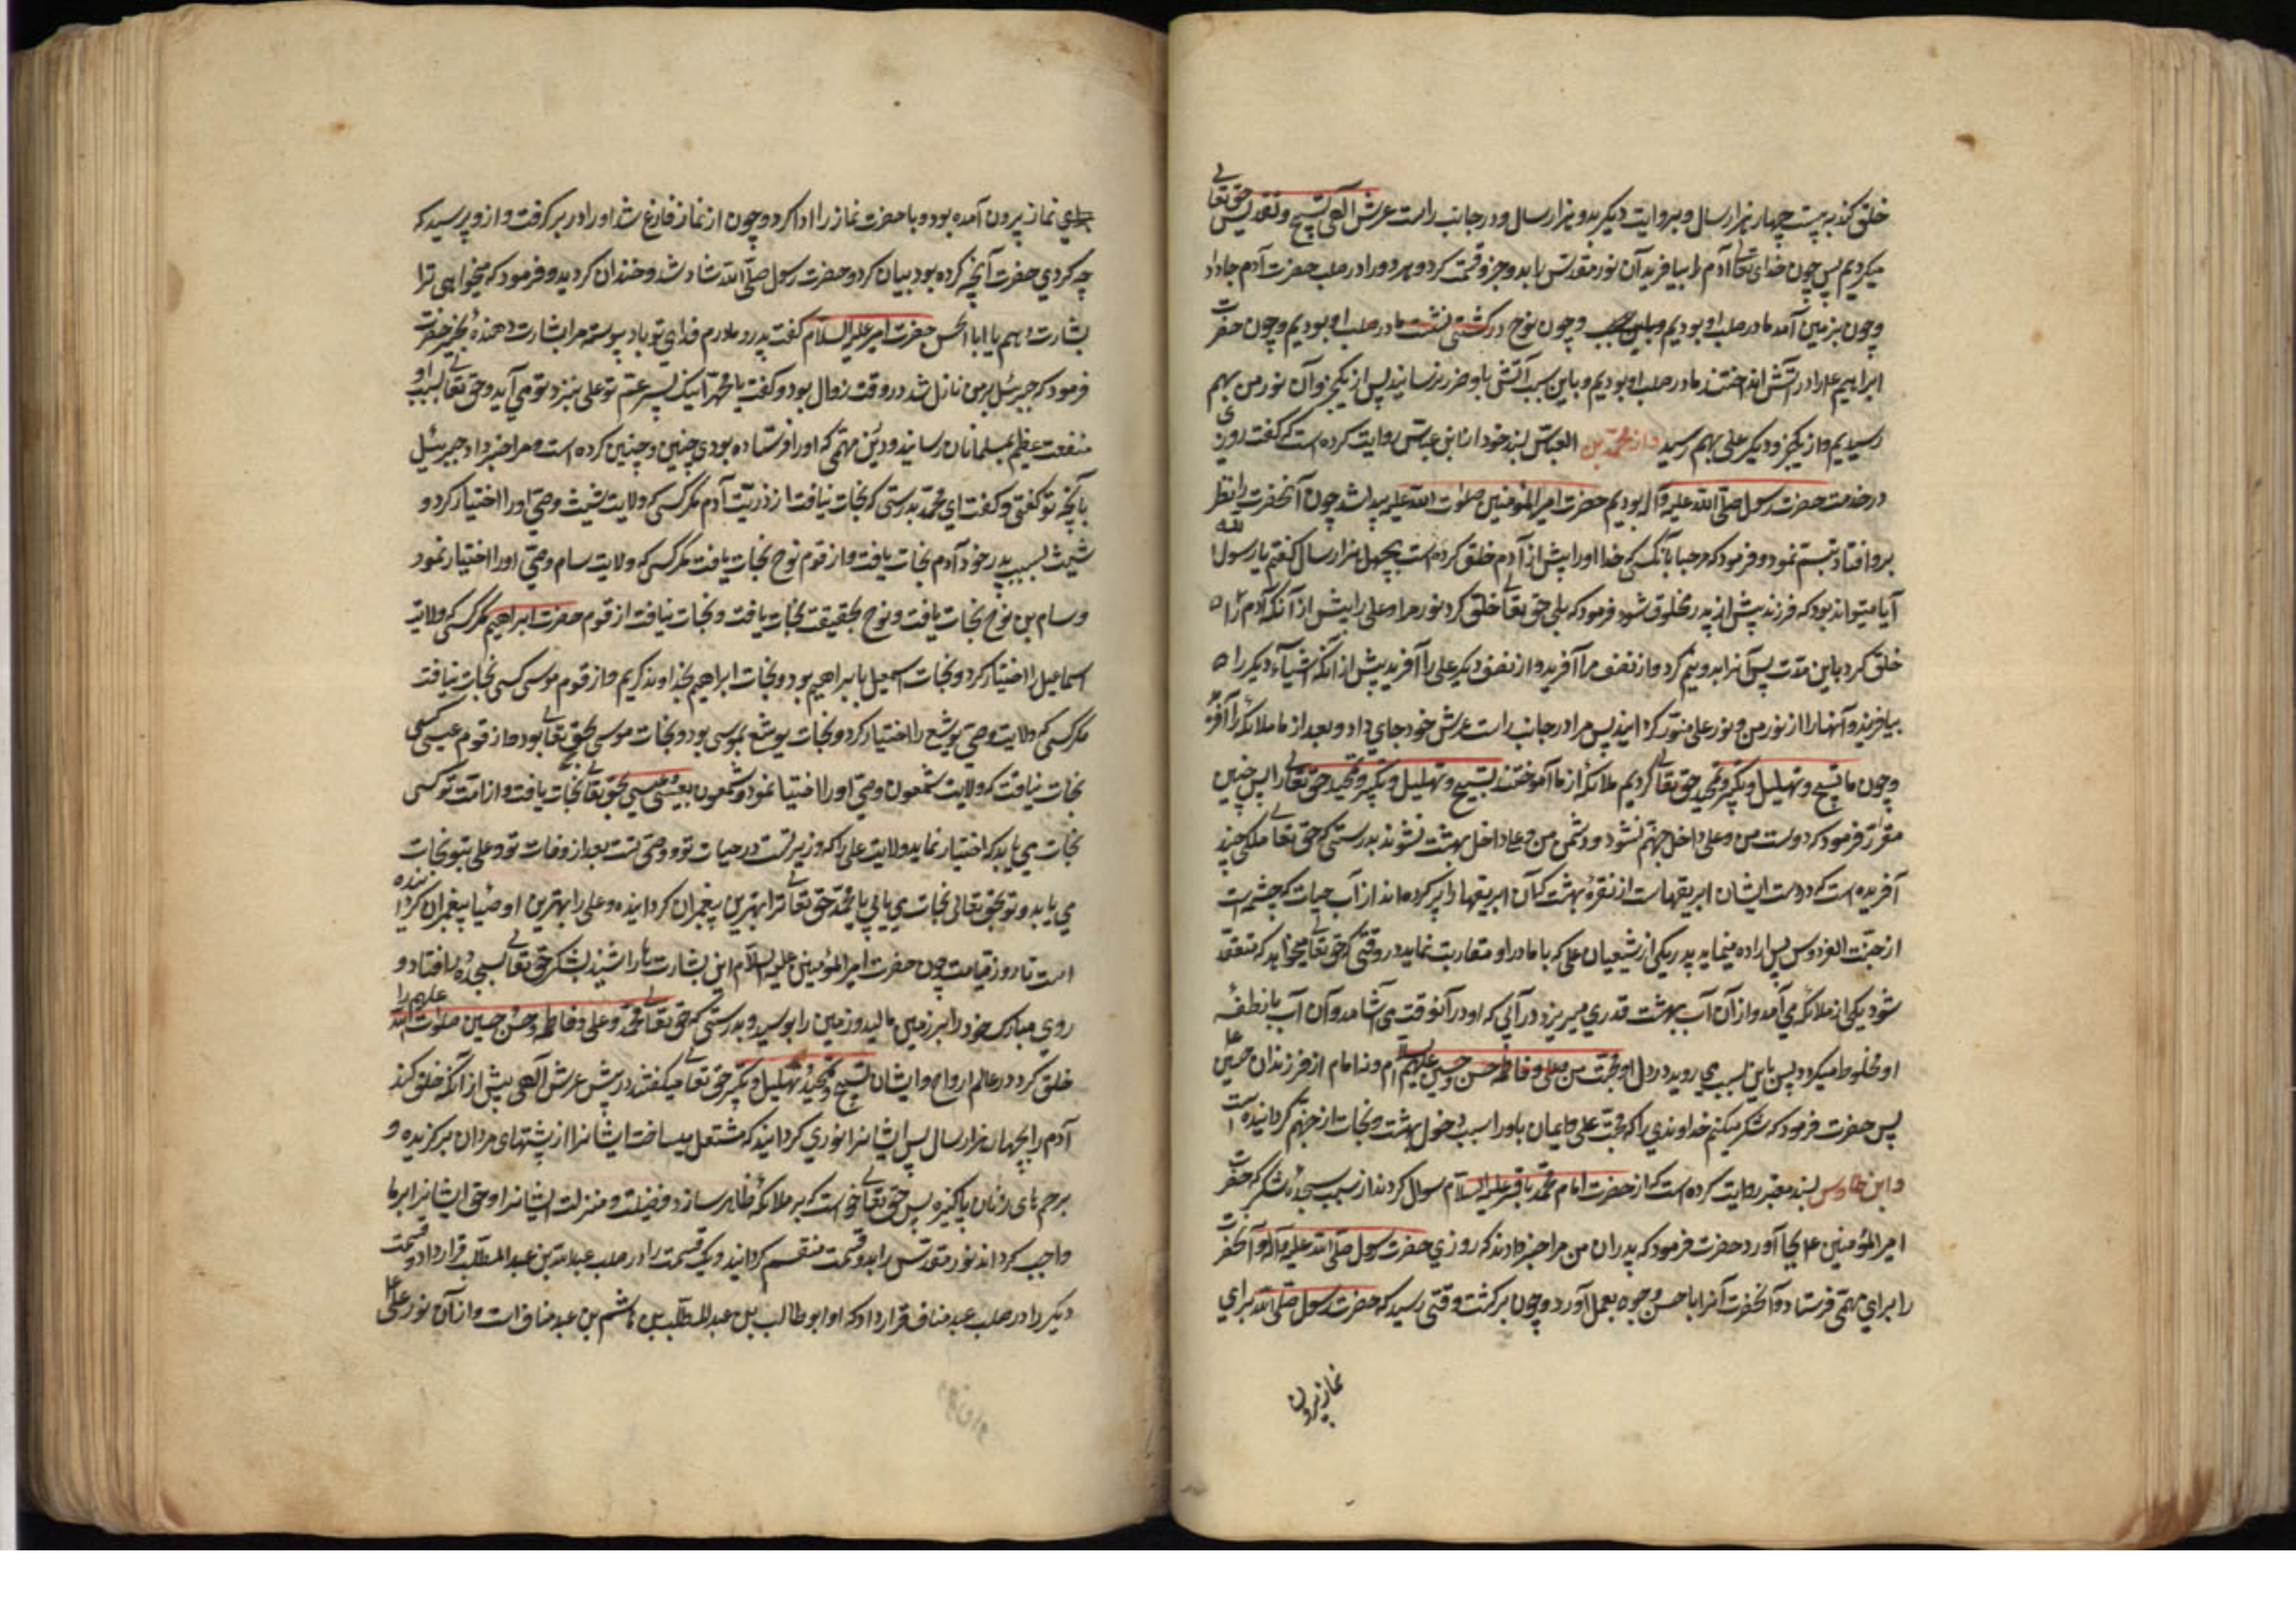 خلق کند به بیست چهار هزار سال و بروایت دیکر بدو هزار سال و در جانب راست عرش الهی تسبیح و تقدیس حق تعالی
میکردیم پس چون خدای تعالی آدم را بیافرید آن نور مقدس را بدو جزو قسمت کرد و هر دو را در صلب حضرت آدم جا داد
و چون بزمین آمد ما در صلب او بودیم و چون نوح در کشتی نشت ما در صلب او بودیم و چون حضرت
ابراهیم را در آتش انداختند ما در صلب او بودیم و باین سبب آتش باو ضرر نرسانید پس از یکجزو آن نور من بهم
رسیدیم و از یکجزو دیکر علی بهم رسید و از محمد بن العباس بسند خود از ابن عباس روایت کرده است که کفت روزی
در خدمت حضرت رسول صلی الله علیه و آله بودیم حضرت امیر المؤمنین صلوات الله علیه پیدا شد چون آنحضرت را نظر
برو افتاد تبسم نمود و فرمود که مرحبا بآنکسی که خدا او را پیش از آدم خلق کرده است بچهل هزار سال کفتم یا رسول الله
آیا میتواند بود که فرزند پیش از پدر مخلوق شود فرمود که بلی حق تعالی خلق کرد نور مرا و علی را پیش از آنکه آدم را
خلق کرد باین مدت پس آنرا بدو نیم کرد و از نصف مرا آفرید و از نصف دیکر علی را آفرید پیش از آنکه اشیاء دیکر را
بیافریند و آنها را از نور من و نور علی منور کردانید پس مرا در جانب راست عرش خود جای داد و بعد از ما ملائکه را آفرید
و چون ما تسبیح و تهلیل و تکبیر و تمجید حق تعالی کردیم ملائکه از ما آموختند تسبیح و تهلیل و تکبیر و تمجید حق تعالی را پس چنین
مقرر فرمود که دوست من و علی داخل جهنم نشود و دشمن من و علی داخل بهشت نشوند بدرستی که حق تعالی ملکی چند
آفریده است که در دست ایشان ابریقهاست از نقرهٔ بهشت که آن ابریقها را پر کرده اند از آب حیات که چشمه ایست
از جنت الفردوس پس اراده مینماید پدر یکی از شیعیان علی که با مادر او مقاربت نماید در وقتی که حق تعالی میخواهد که منعقد
شود یکی از ملائکه می آمد و از آن آب بهشت قدری میریزد در آبی که او در آنوقت می آشامد و آن آب با نطفهٔ
او مخلوط میکردد پس باین سبب می روید در دل او محبت من و علی و فاطمه حسن و حسین علیهم السلام و نه امام از فرزندان حسین
پس حضرت فرمود که شکر میکنم خداوندی را که محبت علی و ایمان باو را سبب دخول بهشت و نجات از جهنم کردانیده است
و ابن طاوس بسند معتبر روایت کرده است که از حضرت امام محمد باقر علیه السلام سوال کردند از سبب سجدهٔ شکر که حضرت
امیر المؤمنین ع بجا آورد حضرت فرمود که پدران من مرا خبر دادند که روزی حضرت رسول صلی الله علیه و آله آنحضرت
را برای مهمی فرستاد و آنحضرت آنرا باحسن وجوه بعمل آورد و چون برکشت وقتی رسید که حضرت رسول صلی الله برای
نماز بیرون
نماز بیرون آمده بود و با حضرت نماز را ادا کرد و چون از نماز فارغ شد او را در بر کرفت و از و پرسید که
چه کردی حضرت آنچه کرده بود بیان کرد و حضرت رسول صلی الله شاد شد و خندان کردید و فرمود که میخواهی ترا
بشارت دهم یا ابا الحسن حضرت امیر علیه السلام کفت پدر و مادرم فدای تو باد پیوسته مرا بشارت دهندهٔ بخیر حضرت
فرمود که جبرئیل بر من نازل شد در وقت زوال بود و کفت یا محمد اینک پسر عم تو علی بنزد تو می آید و حق تعالی بسبب او
منفعت عظیم بمسلمانان رسانید و در این مهمی که او را فرستاده بودی چنین و چنین کرده است و مرا خبر داد جبرئیل
بآنچه تو کفتی و کفت ای محمد بدرستی که نجات نیافت از ذریت آدم مکر کسی که ولایت شیث وصی او را اختیار کرد و
شیث بسبب پدر خود آدم نجات یافت و از قوم نوح نجات یافت مکر کسی که ولایت سام وصی او را اختیار نمود
و سام بن نوح نجات یافت و نوح بحقیقت نجات یافت و نجات نیافت از قوم حضرت ابراهیم مکر کسی که ولایت
اسماعیل را اختیار کرد و نجات اسمعیل بابراهیم بود و نجات ابراهیم بخداوند کریم و از قوم موسی کسی نجات نیافت
مکر کسی که ولایت وصی یوشع را اختیار کرد و نجات یوشع بموسی بود و نجات موسی بحق تعالی بود و از قوم عیسی کسی
نجات نیافت که ولایت شمعون وصی او را اختیا نمود و شمعون بعیسی و عیسی بحق تعالی نجات یافت و از امت تو کسی
نجات می یابد که اختیار نماید ولایت علی را که وزیر تست در حیات تو و وصی تست بعد از وفات تو و علی بتو نجات
می یابد و تو بحق تعالی نجات می یابی یا محمد حق تعالی ترا بهترین پیغمبران کردانیده و علی را بهترین اوصیا پیغمبران کردانیده
است تا روز قیامت چون حضرت امیر المؤمنین علیه السلام این بشارت را شنید بشکر حق تعالی بسجده افتاد و
روی مبارک خود را بر زمین مالید و زمین را بوسید و بدرستی که حق تعالی محمد و علی و فاطمه و حسن حسین صلوات الله علیهم را
خلق کرد در عالم ارواح و ایشان تسبیح و تمجید و تهلیل و تکبیر حق تعالی میکفتند در پیش عرش آلهی پیش از آنکه خلق کند
آدم را بچهارده هزار سال پس ایشانرا نوری کردانید که مشتعل میساخت ایشانرا از پشتهای مردان برکزیده و
برحم های زنان پاکیزه پس حق تعالی خواست که بر ملائکه ظاهر سازد فضیلت و منزلت ایشانرا و حق ایشانرا بر ما
واجب کرداند نور مقدس را بدو قسمت منقسم کردانید و یک قسمت را در صلب عبدالله بن عبدالمطلب قرار داد و قسمت
دیکر را در صلب عبد مناف قرار داد که او ابو طالب بن عبدالمطلب بن هاشم بن عبد مناف است و از آن نور علی